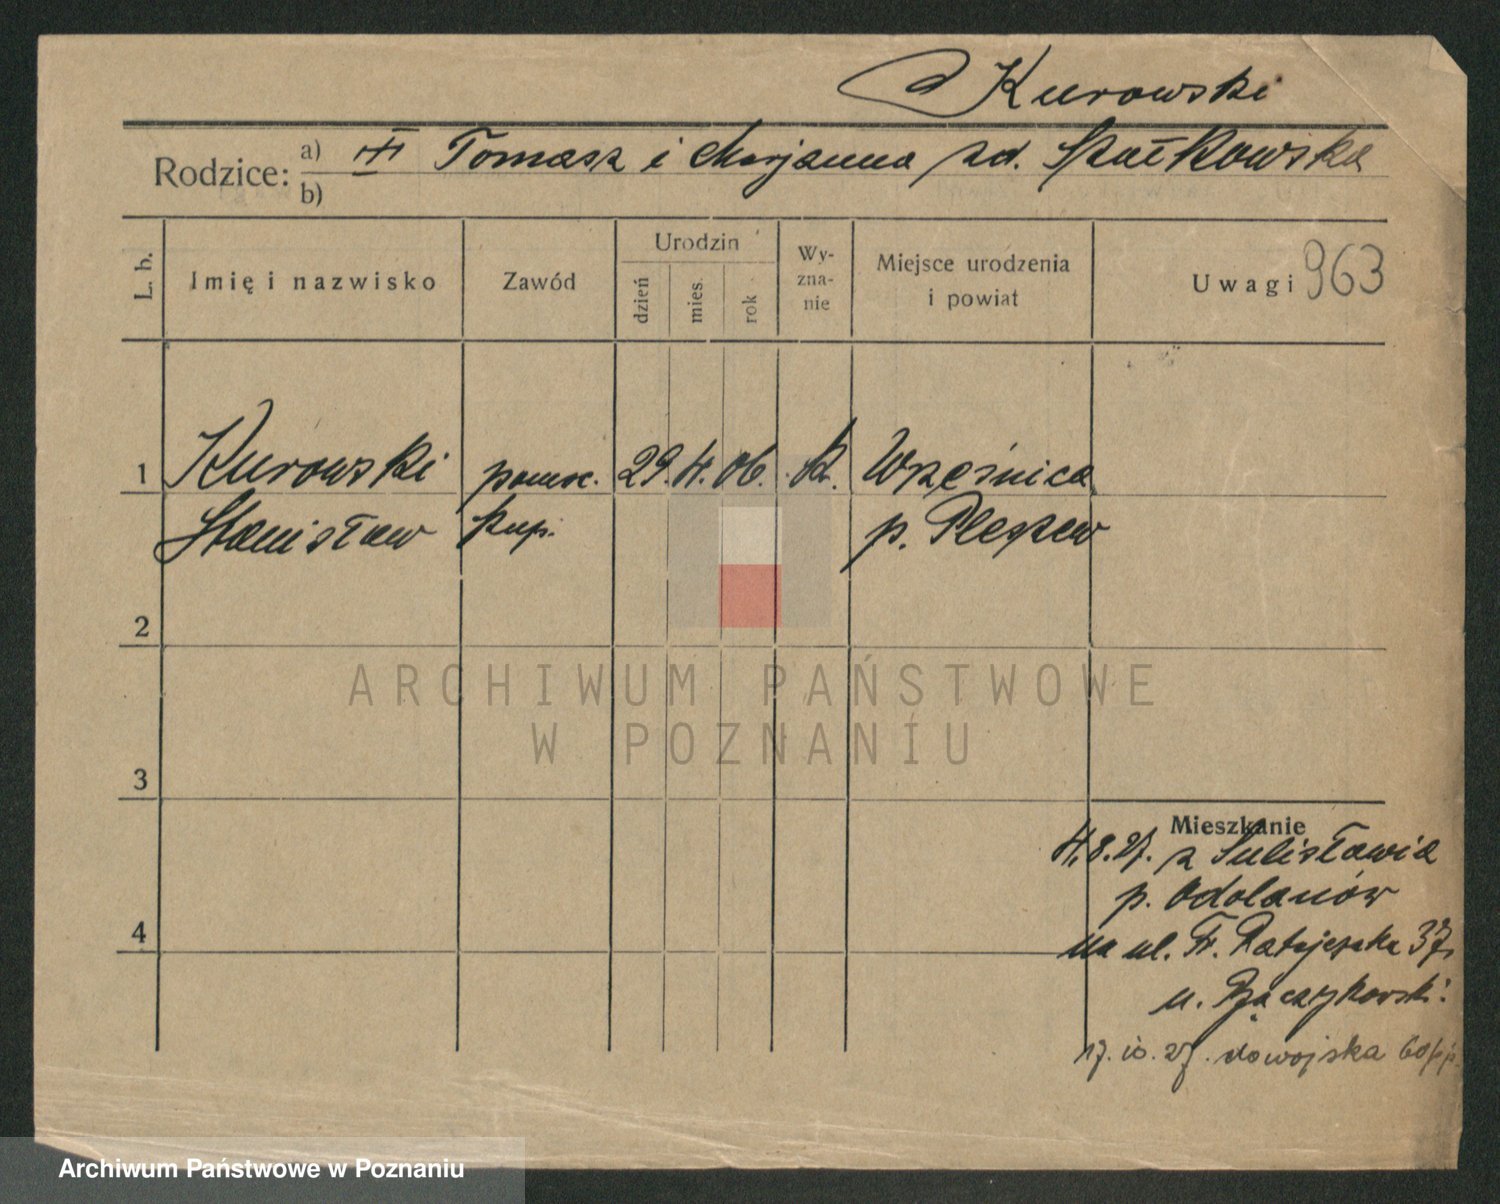 Kurowski
Rodzice: a) Tomasz i Marjanna zd. Szałkowska
b)
L. b.
Imię i nazwisko
Zawód
Urodzin
dzień
mies.
rok
Wy-
zna-
nie
Miejsce urodzenia
i powiat
Uwagi 963
1 Kurowski pomoc. 29. 4. 06. k. Wrześnica
Stanisław kup. p. Pleszew
2
ARCHIWUM PAŃSTWOWE
W POZNANIU
3
Mieszkanie
4.8.27. z Sulisławia
p. Odolanów
4
na ul. Fr. Ratajczaka 37.
u. Rączykowski.
17.10.27. do wojska 60 pp.
Archiwum Państwowe w Poznaniu